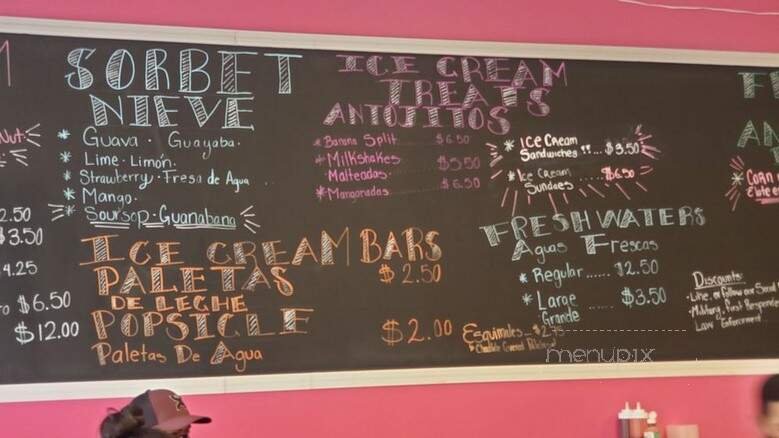 SORBET
NIEVE
Guava · Guayaba·
Lime·Limón·
Strawberry·Fresa de Agua
Mango·
Soursop-Guanabana
Nut·
2.50
$3.50
4.25
$6.50
$12.00
ICE CREAM
TREATS
ANTOJITOS
Banana Split $6.50
Milkshakes $5.50
Malteadas
Mangonadas $6.50
Ice Cream
Sandwiches $3.50
Ice Cream
Sundaes $6.50
ICE CREAM BARS
PALETAS $2.50
DE LECHE
POPSICLE $2.00
Paletas De Agua
Esquimales
FRESH WATERS
Aguas Frescas
Regular...... $2.50
Large ...... $3.50
Grande
CORN
Discounts:
Like, or Follow our
Military, First
Law Enforcement
menupix